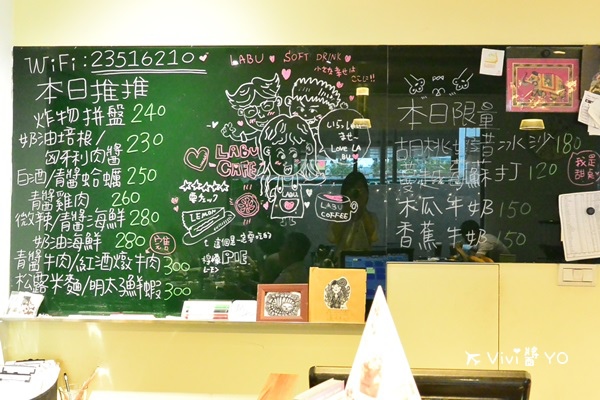 WiFi: 23516210
本日推推
炸物拼盤 240
奶油培根/
匈牙利肉醬 230
白酒/青醬蛤蠣 250
青醬雞肉 260
微辣/青醬海鮮 280
奶油海鮮 280
青醬牛肉/紅酒燉牛肉 300
松露米麵/明太子鮮蝦 300
LABU SOFT DRINK
LABU
CAFE
LOVE LA
BU
LEMON
LABU
COFFEE
PIE
本日限量
胡桃 冰沙 180
蘇打 120
木瓜牛奶 150
香蕉牛奶 150
我是
甜點
Vivi醬YO